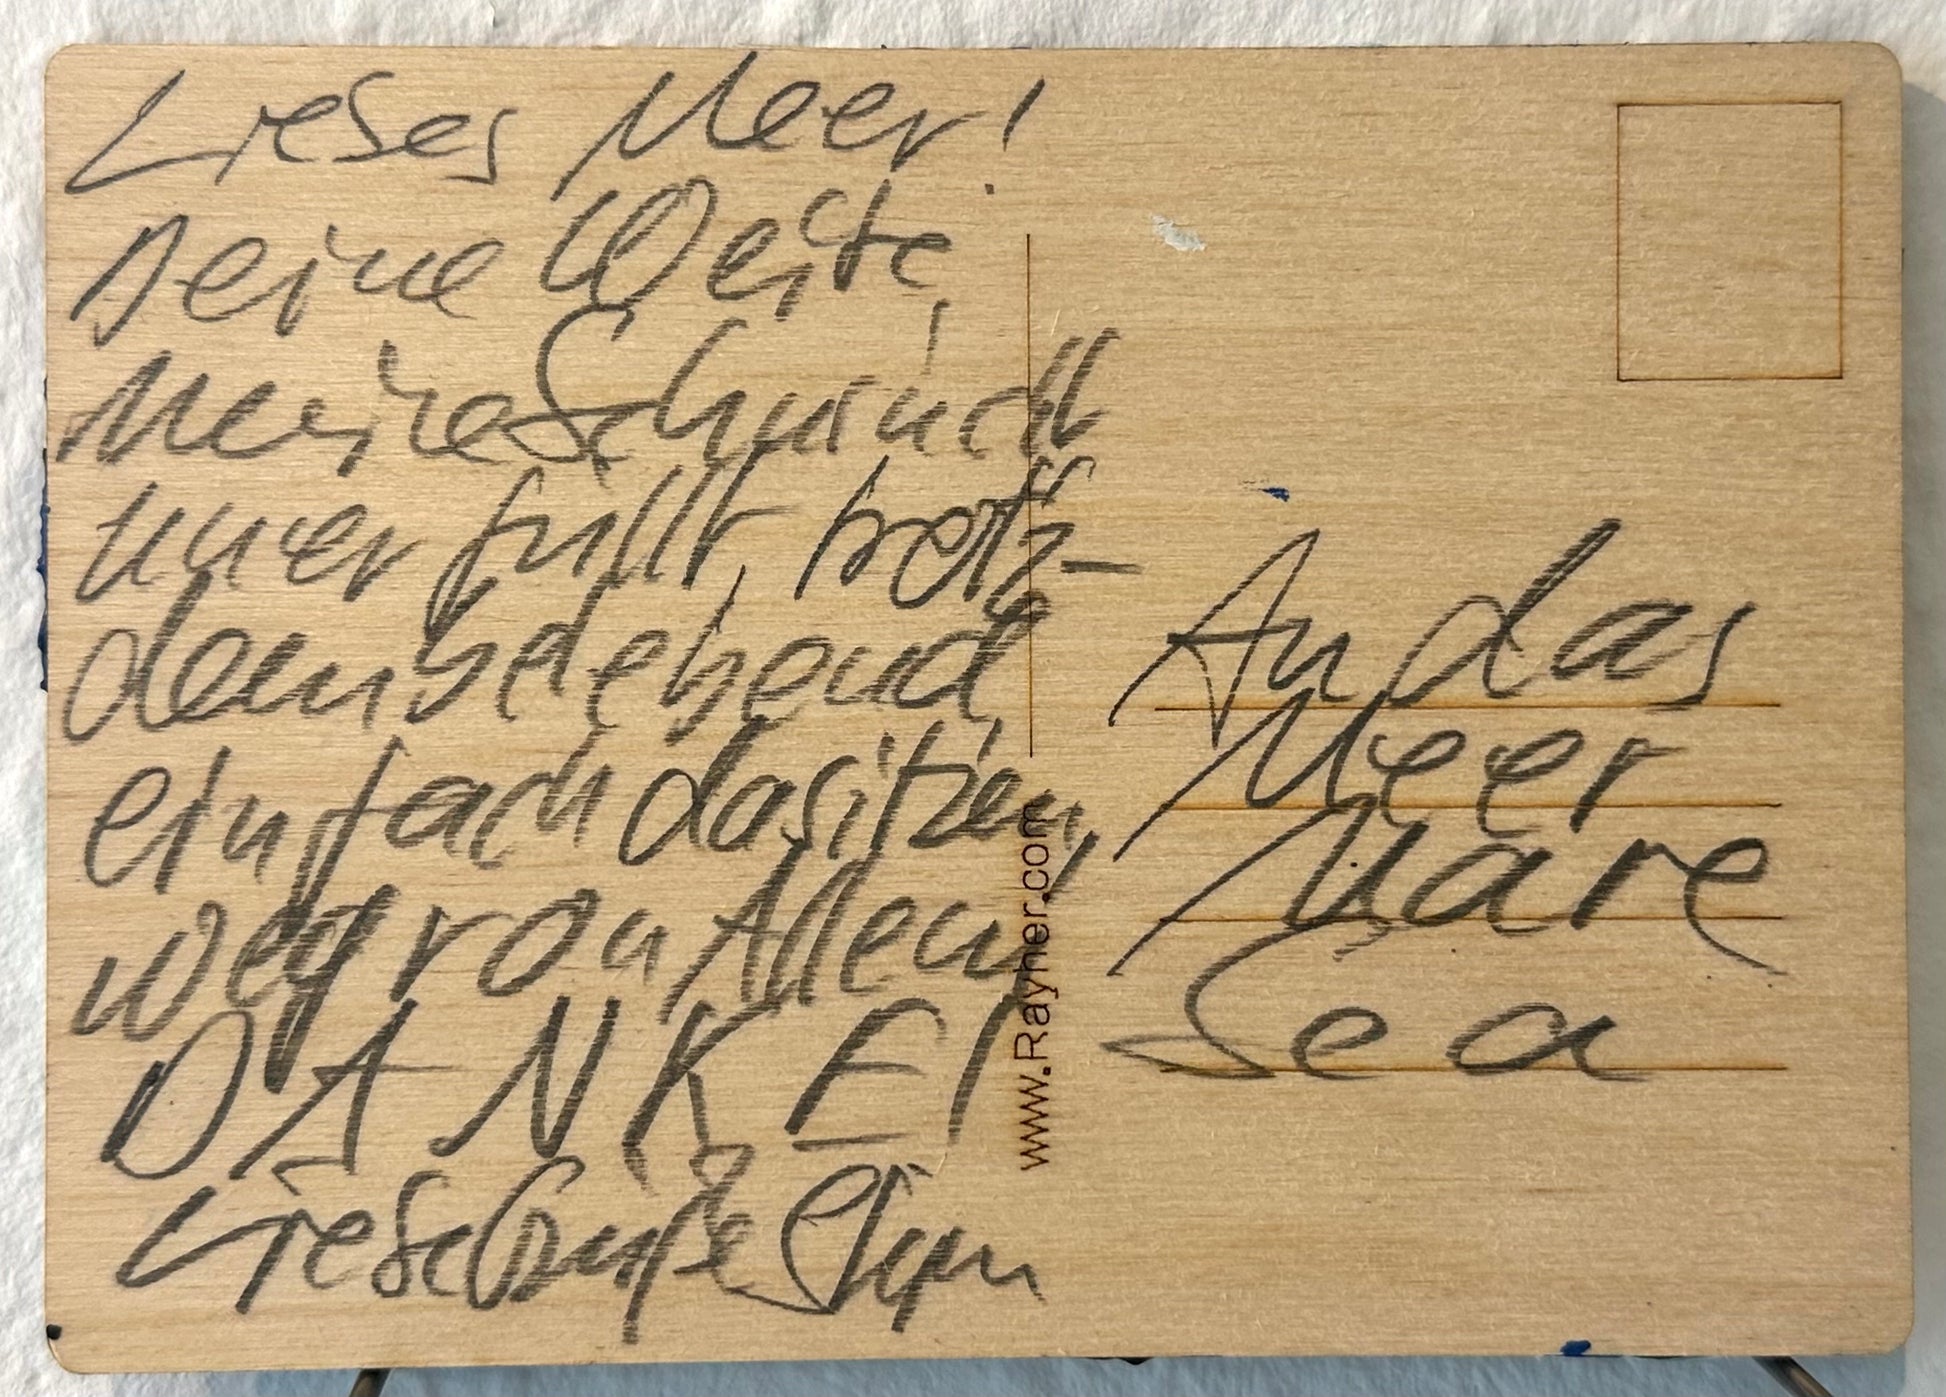 Liebes Meer!
Deine Weite,
meine Sehnsucht
unerfüllt, trotz-
dem belebend,
einfach dasitzen,
weg von Allem!
DANKE!
Liebe Grüße
An das
Meer
Mare
Sea
www.Rayher.com